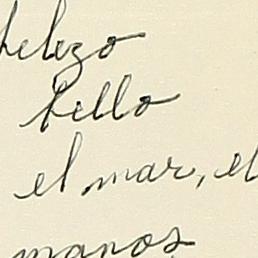 bello
el mar, el
manos